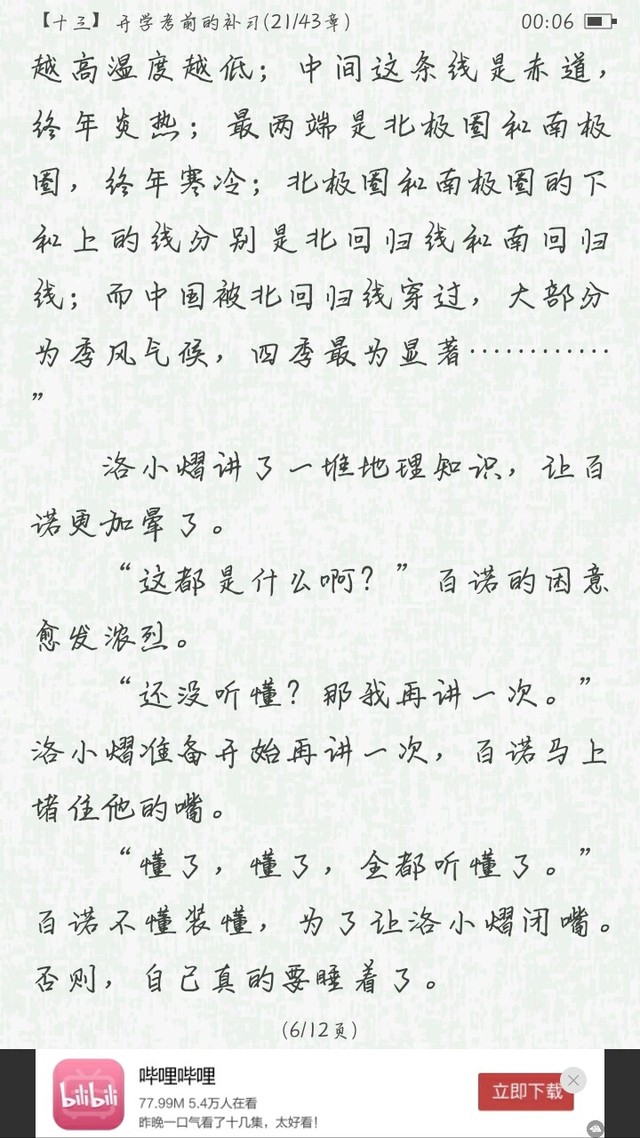 【十三】开学考前的补习(21/43章)
00:06
越高温度越低；中间这条线是赤道，
终年炎热；最两端是北极圈和南极
圈，终年寒冷；北极圈和南极圈的下
和上的线分别是北回归线和南回归
线；而中国被北回归线穿过，大部分
为季风气候，四季最为显著…………
”
洛小熠讲了一堆地理知识，让百
诺更加晕了。
“这都是什么啊？”百诺的困意
愈发浓烈。
“还没听懂？那我再讲一次。”
洛小熠准备开始再讲一次，百诺马上
堵住他的嘴。
“懂了，懂了，全都听懂了。”
百诺不懂装懂，为了让洛小熠闭嘴。
否则，自己真的要睡着了。
(6/12页)
bilibili
哔哩哔哩
77.99M 5.4万人在看
昨晚一口气看了十几集，太好看！
立即下载